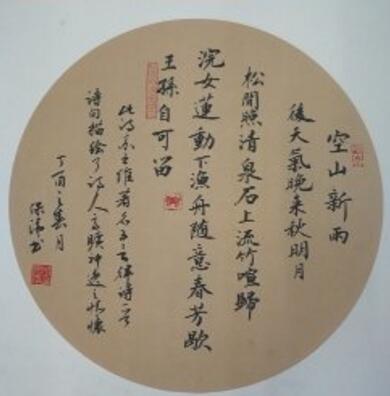 空山新雨
後天氣晚来秋明月
松間照清泉石上流竹喧歸
浣女蓮動下漁舟随意春芳歇
王孫自可留
此诗系王維著名五言律诗一首
诗句描绘了诗人高曠神逸之情懷
丁酉之春月
书